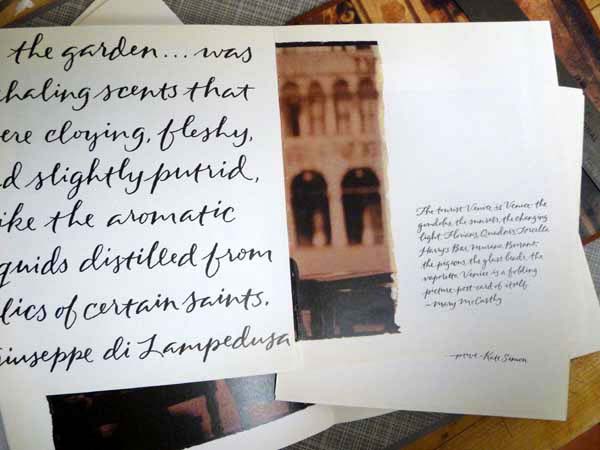 the garden... was
haling scents that
ere cloying, fleshy,
d slightly putrid,
ike the aromatic
quids distilled from
lics of certain saints.
iuseppe di Lampedusa
The tourist Venice is Venice: the
gondolas, the sunsets, the changing
light, Florians, Quadris, Torcello,
Harry's Bar, Murano, Burano,
the pigeons, the glass beads, the
vaporetto. Venice is a folding
picture-post-card of itself.
—Mary McCarthy
Kate Simon